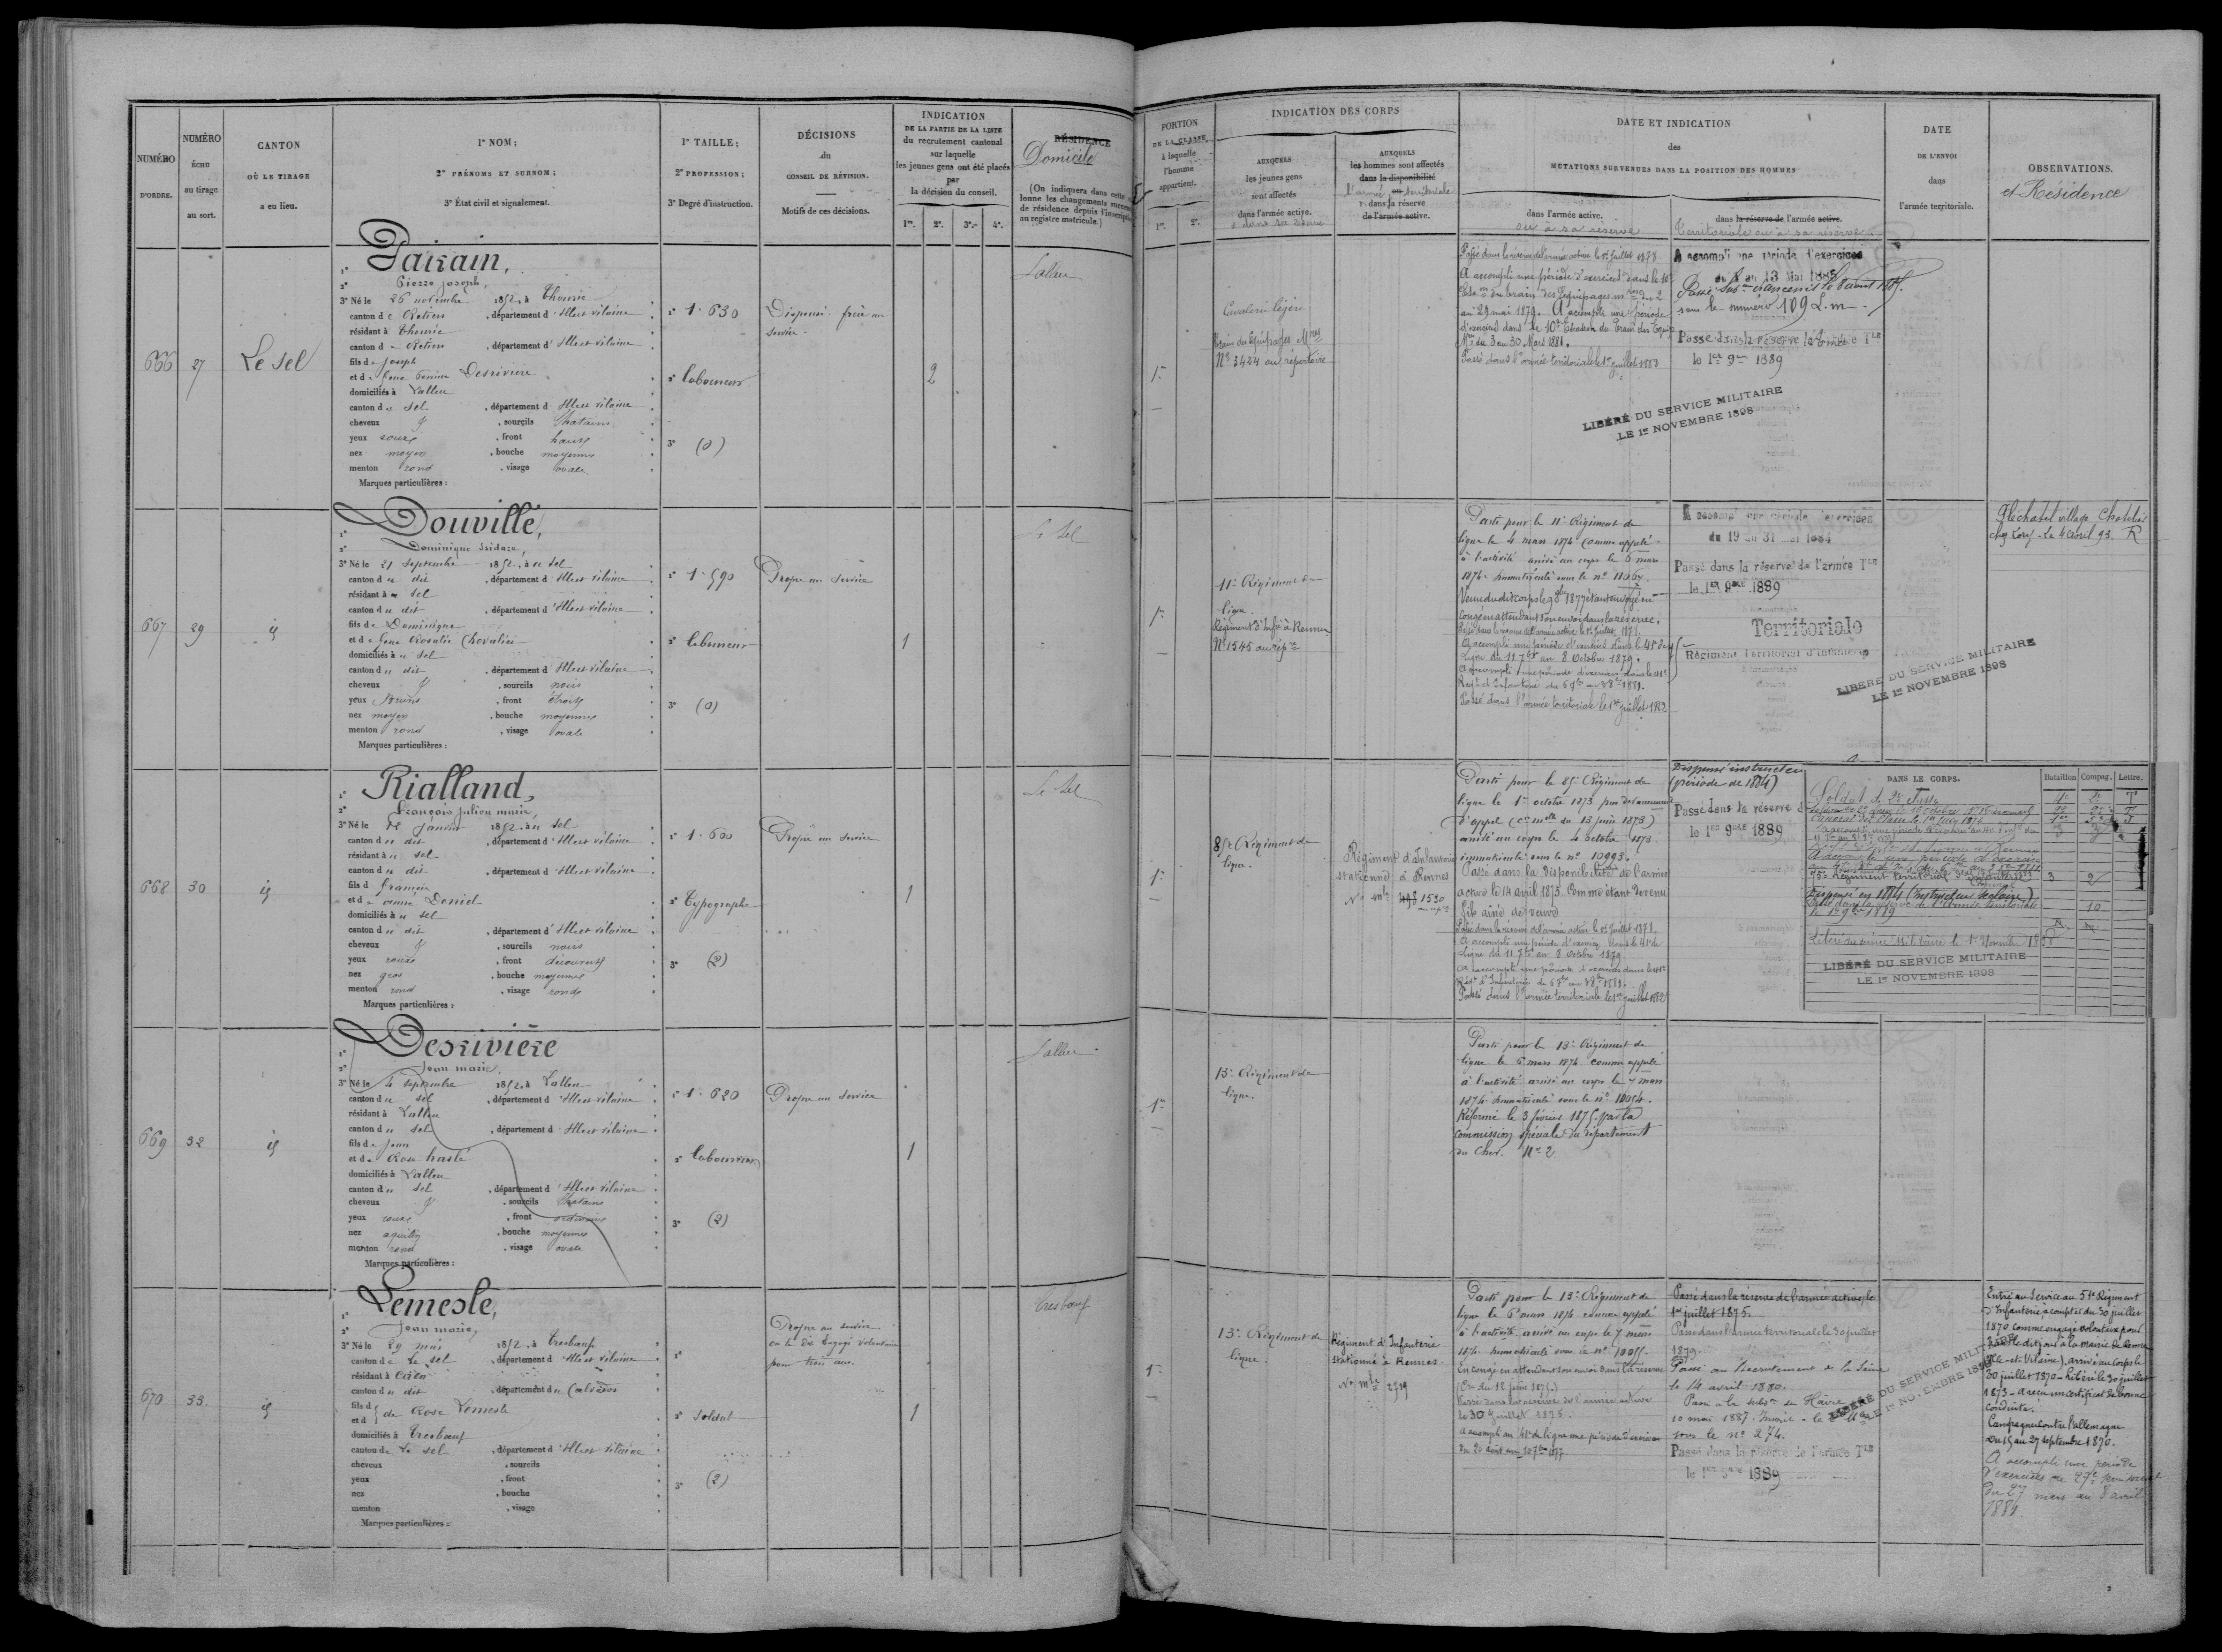 NUMÉRO D'ORDRE.
NUMÉRO ÉCHU au tirage au sort.
CANTON OÙ LE TIRAGE a eu lieu.
1º NOM;
2º PRÉNOMS ET SURNOM;
3º État civil et signalement.
1º TAILLE;
2º PROFESSION;
3º Degré d'instruction.
DÉCISIONS
du
CONSEIL DE RÉVISION.
Motifs de ces décisions.
INDICATION
DE LA PARTIE DE LA LISTE
du recrutement cantonal
sur laquelle
les jeunes gens ont été placés
par
la décision du conseil.
1re. 2e. 3e. 4e.
RÉSIDENCE
Domicile
(On indiquera dans cette
lonne les changements
de résidence depuis l'inscription
au registre matricule.)
PORTION
DE LA CLASSE
à laquelle
l'homme
appartient.
1re. 2e.
INDICATION DES CORPS
AUXQUELS
les jeunes gens
sont affectés
dans l'armée active.
AUXQUELS
les hommes sont affectés
dans la disponibilité
l'armée territoriale
dans la réserve
de l'armée active.
DATE ET INDICATION
des
MUTATIONS SURVENUES DANS LA POSITION DES HOMMES
dans l'armée active.
ou a sa reserve
dans la réserve de l'armée active.
Territoriale ou a sa reserve.
DATE
DE L'ENVOI
dans
l'armée territoriale.
OBSERVATIONS.
et Résidence
666
27
Le Sel
Pairain,
Pierre Joseph,
3º Né le 26 novembre 1852, à Thourie
canton de Retiers, département d'Ille et vilaine
résidant à Thourie
canton de Retiers, département d'Ille et vilaine
fils de Joseph
et de feue Desriviere
domiciliés à Lalleu
canton du Sel, département d'Ille et vilaine
cheveux et, sourcils Chatains
yeux roux, front haut
nez moyen, bouche moyenne
menton rond, visage ovale
Marques particulières :
1º 1. 630
2º laboureur
3º (0)
Dispensé. frère au
service.
2
Lalleu
1re
Cavalerie légère
Train des équipages Mres
Nº 3424 au répertoire
Passé dans la réserve de l'armée active le 1er Juillet 1878
A accompli une période d'exercices dans le 10e
Escon du train des Equipages mres du 2
au 29 mai 1879. A accompli une période
d'exercices dans le 10e Escadron du Train des Equip
Mres du 3 au 30 Mars 1881.
Passé dans l'armée territoriale le 1er juillet 1883
A accompli une période d'exercices
du 1 au 13 Mai 1885
sous le numéro 109 L.m
Passé dans la réserve de l'Armée Tle
le 1er 9bre 1889
LIBÉRÉ DU SERVICE MILITAIRE
LE 1er NOVEMBRE 1898
667
29
id
Douville,
Dominique Isidore,
3º Né le 21 Septembre 1852, à u Sel
canton du dit, département d'Ille et vilaine
résidant à u Sel
canton du dit, département d'Ille et vilaine
fils de Dominique
et de feue Rosalie Chevalier
domiciliés à u Sel
canton du dit, département d'Ille et vilaine
cheveux et, sourcils noirs
yeux bruns, front étroit
nez moyen, bouche moyenne
menton rond, visage ovale
Marques particulières :
1º 1. 590
2º laboureur
3º (0)
Propre au Service
1
Le Sel
1re
11e Régiment de
ligne.
Régiment d'Infie à Rennes
Nº 1545 au rép.re
Parti pour le 11e Régiment de
ligne le 4 mars 1874 comme appelé
à l'activité arrivé au corps le 6 mars
1874. Immatriculé sous le nº 11067.
Venu du dit corps le 9 8bre 1877 étant envoyé en
congé en attendant son envoi dans la réserve.
Passé dans la réserve de l'armée active le 1er Juillet 1878.
A accompli une période d'exercices dans le 41e de
Ligne du 11 7bre au 8 Octobre 1879.
A accompli une période d'exercices dans le 41e
Régt d'Infanterie du 6 7bre au 3 8bre 1881.
Passé dans l'armée territoriale le 1er juillet 1882
A accompli une période d'exercices
du 19 au 31 mai 1884
Passé dans la réserve de l'armée Tle
le 1er 9bre 1889
Territoriale
Régiment territorial d'infanterie
LIBÉRÉ DU SERVICE MILITAIRE
LE 1er NOVEMBRE 1898
Pléchatel village Chatelier
chez Cory. Le 4 Avril 93. R
668
30
id
Rialland,
François Julien marie,
3º Né le 12 Janvier 1852, à u Sel
canton du dit, département d'Ille et vilaine
résidant à u Sel
canton du dit, département d'Ille et vilaine
fils d François
et de anne Deniel
domiciliés à u Sel
canton du dit, département d'Ille et vilaine
cheveux et, sourcils noirs
yeux roux, front découvert
nez gros, bouche moyenne
menton rond, visage rond
Marques particulières :
1º 1. 600
2º Typographe
3º (2)
Propre au Service
1
Le Sel
1re
85e Régiment de
ligne.
Régiment d'Infanterie
stationné à Rennes
Nº mle 1530
Parti pour le 85e Régiment de
ligne le 1er octobre 1873
d'appel (cre mlle du 13 juin 1873)
arrivé au corps le 4 octobre 1873.
immatriculé sous le nº 10993.
Passé dans la Disponibilité de l'armée
active le 14 avril 1875. Comme étant devenu
fils aîné de veuve
Passé dans la réserve de l'armée active le 1er Juillet 1878.
A accompli une période d'exercices dans le 41e de
Ligne du 11 7bre au 8 Octobre 1879.
A accompli une période d'exercices dans le 41e
Régt d'Infanterie du 6 7bre au 3 8bre 1881.
Passé dans l'armée territoriale le 1er juillet 1882
Dispensé instructeur
(période de 1884)
Passé dans la réserve d
le 1er 9bre 1889
DANS LE CORPS. Bataillon Compag. Lettre.
Soldat de 2e classe 4e 2e T
75e Régiment territorial d'Infanterie 3 2
Dispensé en 1884 (Instructeur scolaire)
Passé dans la réserve de l'Armée territoriale 10
le 1er 9bre 1889
Libéré du service Militaire le 1er Novembre
LIBÉRÉ DU SERVICE MILITAIRE
LE 1er NOVEMBRE 1898
669
32
id
Desrivière
Jean marie,
3º Né le 4 septembre 1852, à Lalleu
canton du sel, département d'Ille et vilaine
résidant à Lalleu
canton du sel, département d'Ille et vilaine
fils de Jean
et de Rose hasté
domiciliés à Lalleu
canton du sel, département d'Ille et vilaine
cheveux et, sourcils Chatains
yeux roux, front ordinaire
nez aquilin, bouche moyenne
menton rond, visage ovale
Marques particulières :
1º 1. 620
2º laboureur
3º (2)
Propre au Service
1
Lalleu
1re
13e Régiment de
ligne.
Parti pour le 13e Régiment de
ligne le 6 mars 1874 comme appelé
à l'activité arrivé au corps le 7 mars
1874. Immatriculé sous le nº 10054.
Réformé le 3 février 1875 par la
commission spéciale du département
du Cher. Nº 2
670
33.
id
Lemesle,
Jean marie,
3º Né le 29 mai 1852, à Tresboeuf
canton de Le sel, département d'Ille et vilaine
résidant à Caen
canton du dit, département du Calvados
fils d
et d de Rose Lemesle
domiciliés à Tresboeuf
canton de Le sel, département d'Ille et vilaine
cheveux, sourcils
yeux, front
nez, bouche
menton, visage
Marques particulières :
1º
2º Soldat
3º (2)
Propre au service.
ou le dit Engagé Volontaire
pour trois ans.
1
Tresboeuf
1re
13e Régiment de
ligne.
Régiment d'Infanterie
stationné à Rennes.
Nº mle 2719
Parti pour le 13e Régiment de
ligne le 6 mars 1874 comme appelé
à l'activité arrivé au corps le 7 mars
1874. Immatriculé sous le nº 10055.
En congé en attendant son envoi dans la réserve
(Cre du 12 juin 1875.)
Passé dans la réserve de l'armée active
le 30 juillet 1875.
A accompli au 41e de ligne une période d'exercices
du 20 août au 10 7bre 1877
Passé dans la réserve de l'armée active, le
1er juillet 1875.
Passé dans l'armée territoriale le 30 juillet
1879.
Passé au Recrutement de la Seine
le 14 avril 1880.
Passé a la subdon du Hâvre
10 mai 1887.
sous le nº 274.
Passé dans la réserve de l'armée Tle
le 1er 9bre 1889
LIBÉRÉ DU SERVICE MILITAIRE
LE 1er NOVEMBRE 1898
Entré au Service au 51e Régiment
d'Infanterie à compter du 30 juillet
1870 comme engagé volontaire pour
3 ans le dit jour à la Mairie de Rennes
(Ille-et-Vilaine), arrivé au corps le
30 juillet 1870 - Libéré le 30 juillet
1873 - A reçu un certificat de bonne
conduite.
Campagne contre l'allemagne
du 15 au 27 septembre 1870.
A accompli une période
d'exercices au 27e
du 27 mars au 8 avril
1881